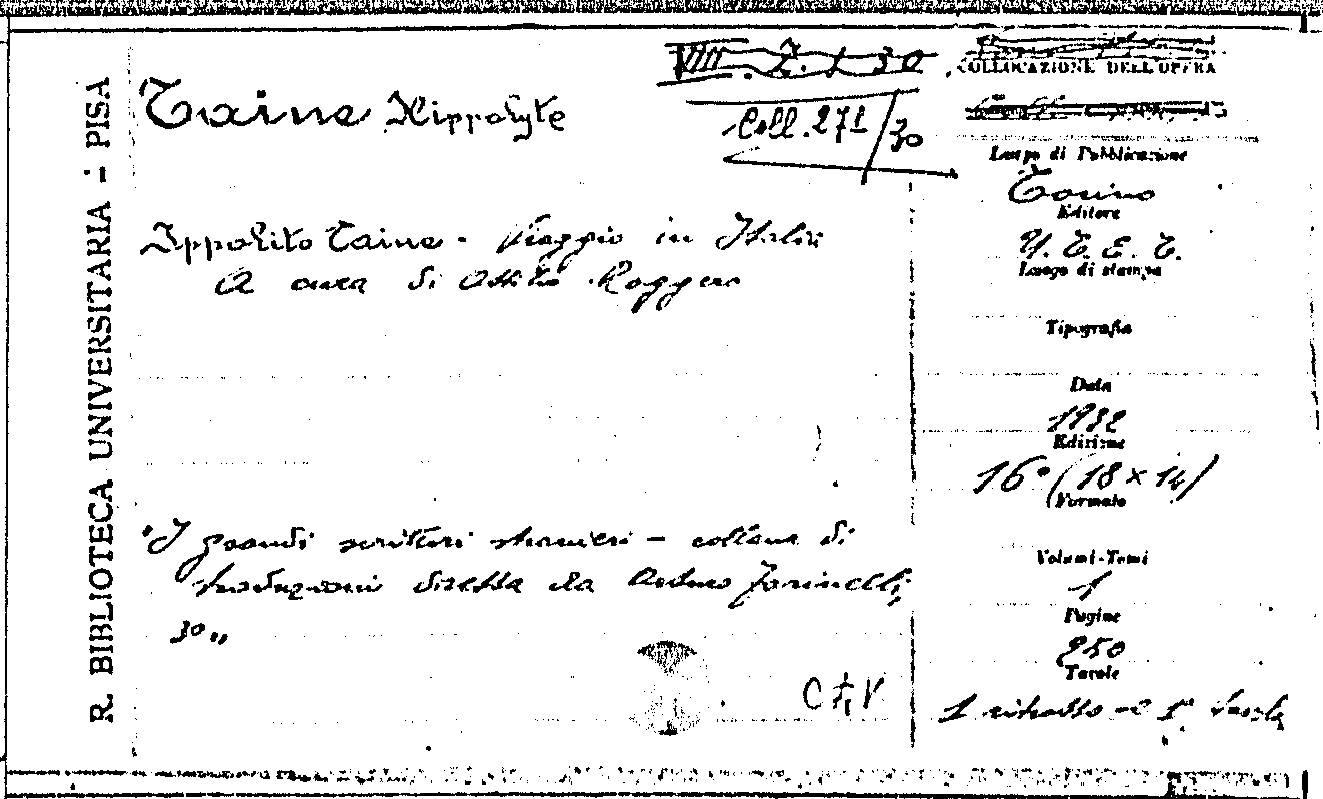 R. BIBLIOTECA UNIVERSITARIA - PISA
Taine Hippolyte
VIII. Z. 1 30
Coll. 271/30
Ippolito Taine - Viaggio in Italia
A cura di Attilio Roggero
"I grandi scrittori stranieri - collana di
traduzioni diretta da Arturo Farinelli,
30"
COLLOCAZIONE DELL'OPERA
Luogo di Pubblicazione
Torino
Editore
U. T. E. T.
Luogo di stampa
Tipografia
Data
1932
Edizione
16° (18 x 14)
Formato
Volumi-Tomi
1
Pagine
250
Tavole
1 ritratto e 1 tavola